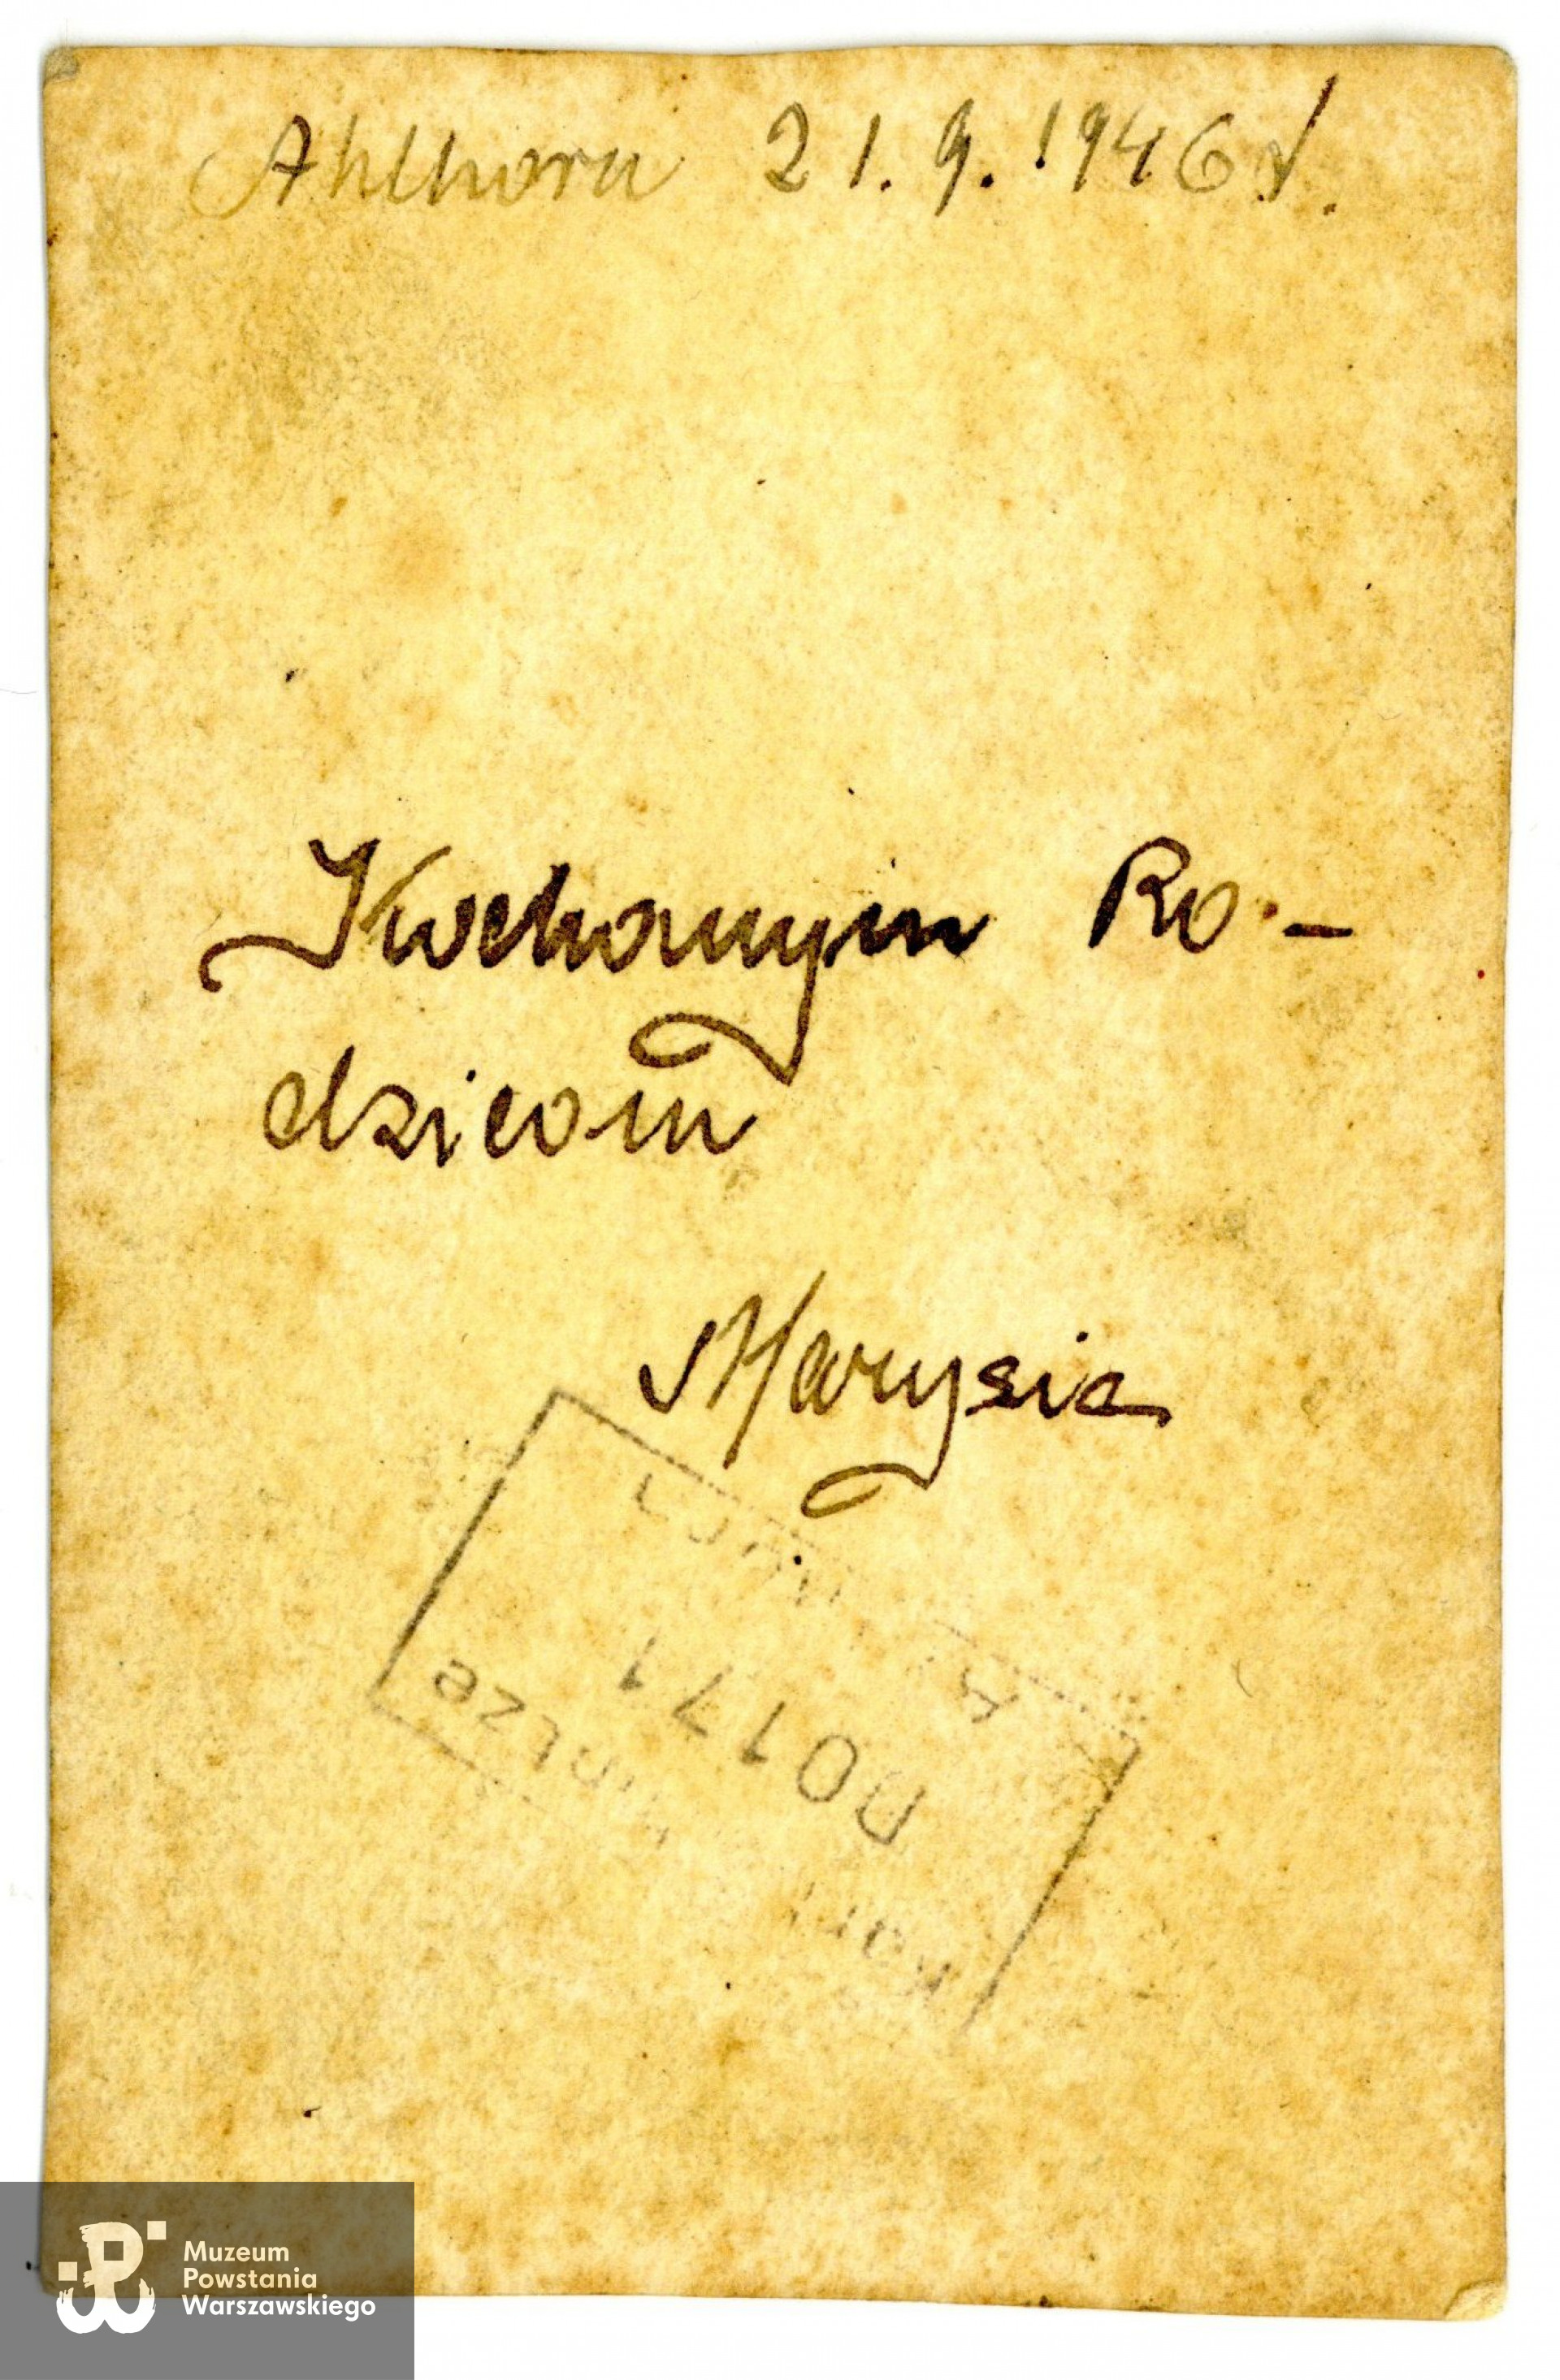 Ahlhorn 21.9.1946 r.
Kochanym Ro-
dzicom
Marysia
00171
Muzeum
Powstania
Warszawskiego